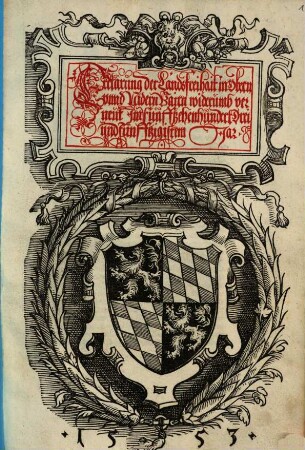 Erclärung der Landsfreihait in Obern
vnnd Nidern Bairn widerumb ver
newt Im fünffzehenhundert Drei
vndfünfftzigistem Jar.
1553